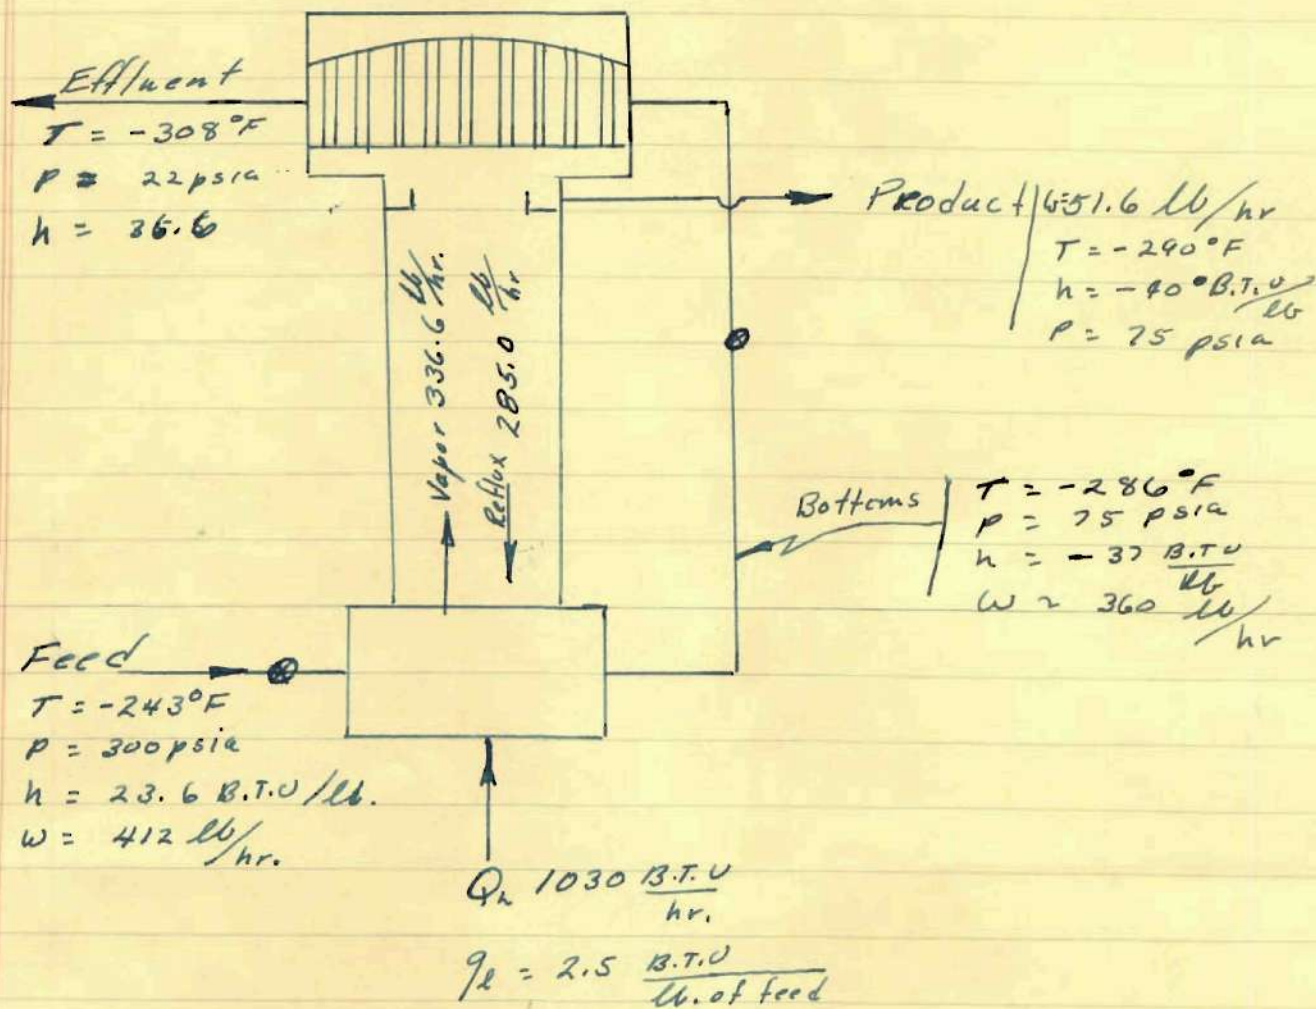 Effluent
T = -308°F
P = 22 psia
h = 36.6
Product W=51.6 lb/hr
T = -290°F
h = -40° B.T.U/lb
P = 75 psia
Vapor 336.6 lb/hr.
Reflux 285.0 lb/hr
Bottoms
T = -286°F
p = 75 psia
h = -37 B.T.U/lb
w = 360 lb/hr
Feed
T = -243°F
P = 300 psia
h = 23.6 B.T.U/lb.
w = 412 lb/hr.
1030 B.T.U/hr.
= 2.5 B.T.U/lb. of feed